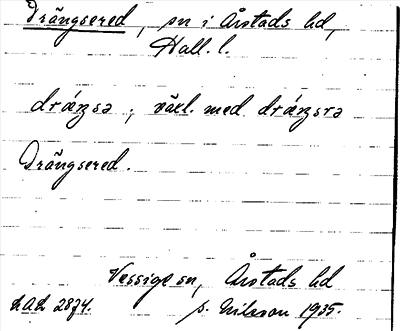 Drängsered, sn i Årstads hd,
Hall. l.
dräŋsə ; växl. med dräŋsrə
Drängsered.
Vessige sn, Årstads hd
LAL 2874. s. Nilsson 1935.